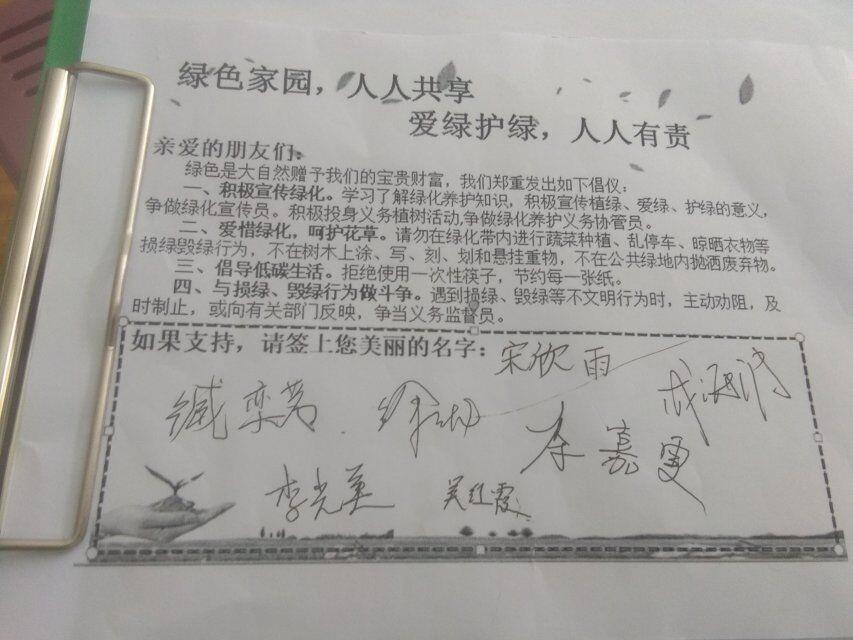 绿色家园，人人共享
爱绿护绿，人人有责
亲爱的朋友们：
绿色是大自然赠予我们的宝贵财富，我们郑重发出如下倡仪：
一、积极宣传绿化。学习了解绿化养护知识，积极宣传植绿、爱绿、护绿的意义，
争做绿化宣传员。积极投身义务植树活动,争做绿化养护义务协管员。
二、爱惜绿化，呵护花草。请勿在绿化带内进行蔬菜种植、乱停车、晾晒衣物等
损绿毁绿行为，不在树木上涂、写、刻、划和悬挂重物，不在公共绿地内抛洒废弃物。
三、倡导低碳生活。拒绝使用一次性筷子，节约每一张纸。
四、与损绿、毁绿行为做斗争。遇到损绿、毁绿等不文明行为时，主动劝阻，及
时制止，或向有关部门反映，争当义务监督员。
如果支持，请签上您美丽的名字：
宋欣雨
李光美
吴红霞